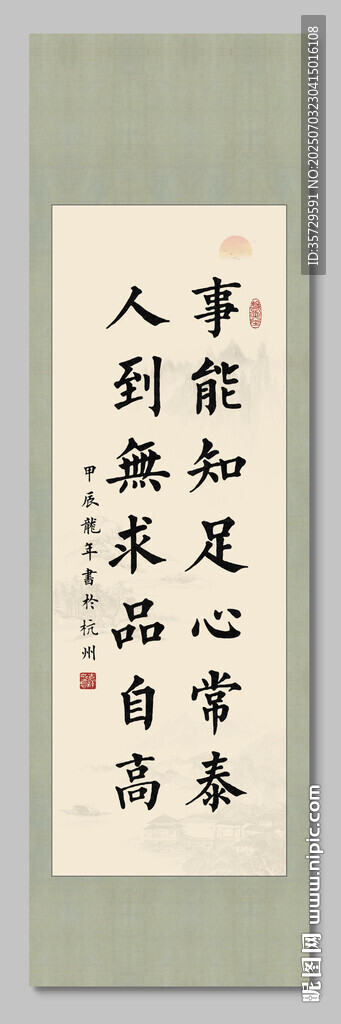 事能知足心常泰
人到無求品自高
甲辰龍年書於杭州
ID:35729591 NO:20250703230415016108
昵图网 www.nipic.com